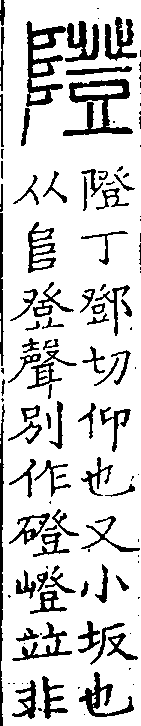 隥
隥丁鄧切仰也又小坂也
从𨸏登聲別作磴嶝竝非